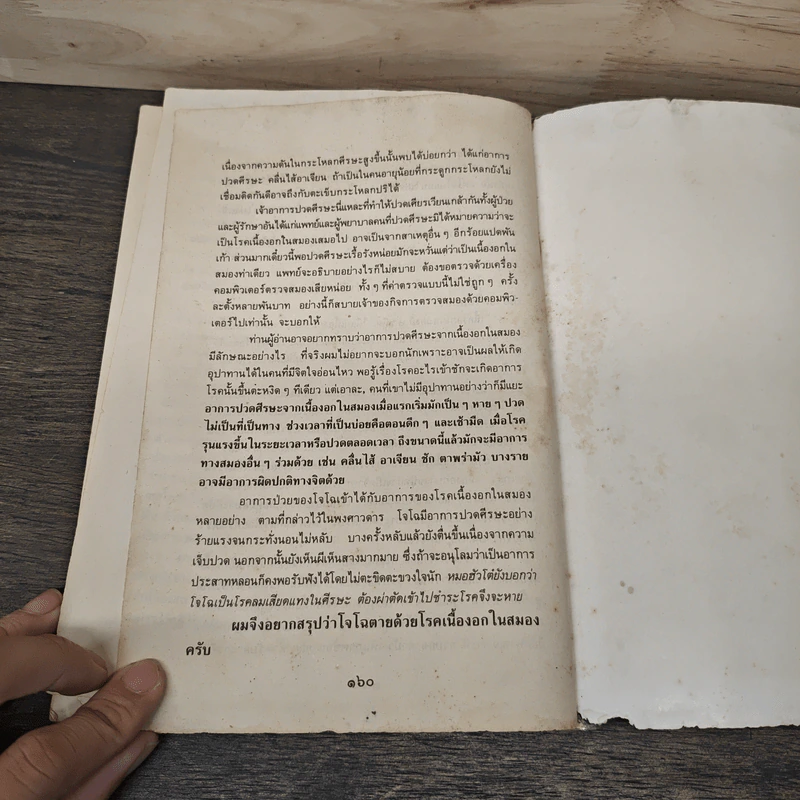 เนื่องจากความดันในกระโหลกศีรษะสูงขึ้นนั้นพบได้บ่อยกว่า ได้แก่อาการ
ปวดศีรษะ คลื่นไส้อาเจียน ถ้าเป็นในคนอายุน้อยที่กระดูกกระโหลกยังไม่
เชื่อมติดกันดีอาจถึงกับตะเข็บกระโหลกปริได้
เจ้าอาการปวดศีรษะนี่แหละที่ทำให้ปวดเศียรเวียนเกล้ากันทั้งผู้ป่วย
และผู้รักษาอันได้แก่แพทย์และผู้พยาบาลคนที่ปวดศีรษะมิได้หมายความว่าจะ
เป็นโรคเนื้องอกในสมองเสมอไป อาจเป็นจากสาเหตุอื่น ๆ อีกร้อยแปดพัน
เก้า ส่วนมากเดี๋ยวนี้พอปวดศีรษะเรื้อรังหน่อยมักจะหวั่นแต่ว่าเป็นเนื้องอกใน
สมองท่าเดียว แพทย์จะอธิบายอย่างไรก็ไม่สบาย ต้องขอตรวจด้วยเครื่อง
คอมพิวเตอร์ตรวจสมองเสียหน่อย ทั้ง ๆ ที่ค่าตรวจแบบนี้ไม่ใช่ถูก ๆ ครั้ง
ละตั้งหลายพันบาท อย่างนี้ก็สบายเจ้าของกิจการตรวจสมองด้วยคอมพิว-
เตอร์ไปเท่านั้น จะบอกให้
ท่านผู้อ่านอาจอยากทราบว่าอาการปวดศีรษะจากเนื้องอกในสมอง
มีลักษณะอย่างไร ที่จริงผมไม่อยากจะบอกนักเพราะอาจเป็นผลให้เกิด
อุปาทานได้ในคนที่มีจิตใจอ่อนไหว พอรู้เรื่องโรคอะไรเข้าชักจะเกิดอาการ
โรคนั้นขึ้นตะหงิด ๆ ทีเดียว แต่เอาละ, คนที่เขาไม่มีอุปาทานอย่างว่าก็มีแยะ
อาการปวดศีรษะจากเนื้องอกในสมองเมื่อแรกเริ่มมักเป็น ๆ หาย ๆ ปวด
ไม่เป็นที่เป็นทาง ช่วงเวลาที่เป็นบ่อยคือตอนดึก ๆ และเช้ามืด เมื่อโรค
รุนแรงขึ้นในระยะเวลาหรือปวดตลอดเวลา ถึงขนาดนี้แล้วมักจะมีอาการ
ทางสมองอื่น ๆ ร่วมด้วย เช่น คลื่นไส้ อาเจียน ชัก ตาพร่ามัว บางราย
อาจมีอาการผิดปกติทางจิตด้วย
อาการป่วยของโจโฉเข้าได้กับอาการของโรคเนื้องอกในสมอง
หลายอย่าง ตามที่กล่าวไว้ในพงศาวดาร โจโฉมีอาการปวดศีรษะอย่าง
ร้ายแรงจนกระทั่งนอนไม่หลับ บางครั้งหลับแล้วยังตื่นขึ้นเนื่องจากความ
เจ็บปวด นอกจากนั้นยังเห็นผีเห็นสางมากมาย ซึ่งถ้าจะอนุโลมว่าเป็นอาการ
ประสาทหลอนก็คงพอรับฟังได้โดยไม่ตะขิดตะขวงใจนัก หมอฮัวโต๋ยังบอกว่า
โจโฉเป็นโรคลมเสียดแทงในศีรษะ ต้องผ่าตัดเข้าไปชำระโรคจึงจะหาย
ผมจึงอยากสรุปว่าโจโฉตายด้วยโรคเนื้องอกในสมอง
ครับ
๑๖๐